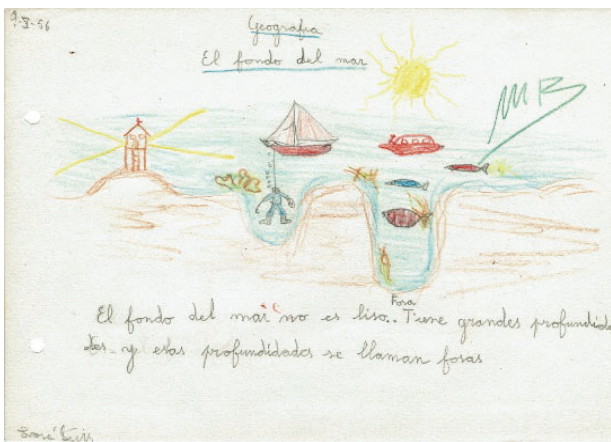 9-X-56
Geografia
El fondo del mar
MB
Fosa
El fondo del mar no es liso.. Tiene grandes profundida
des y esas profundidades se llaman fosas
José Luis